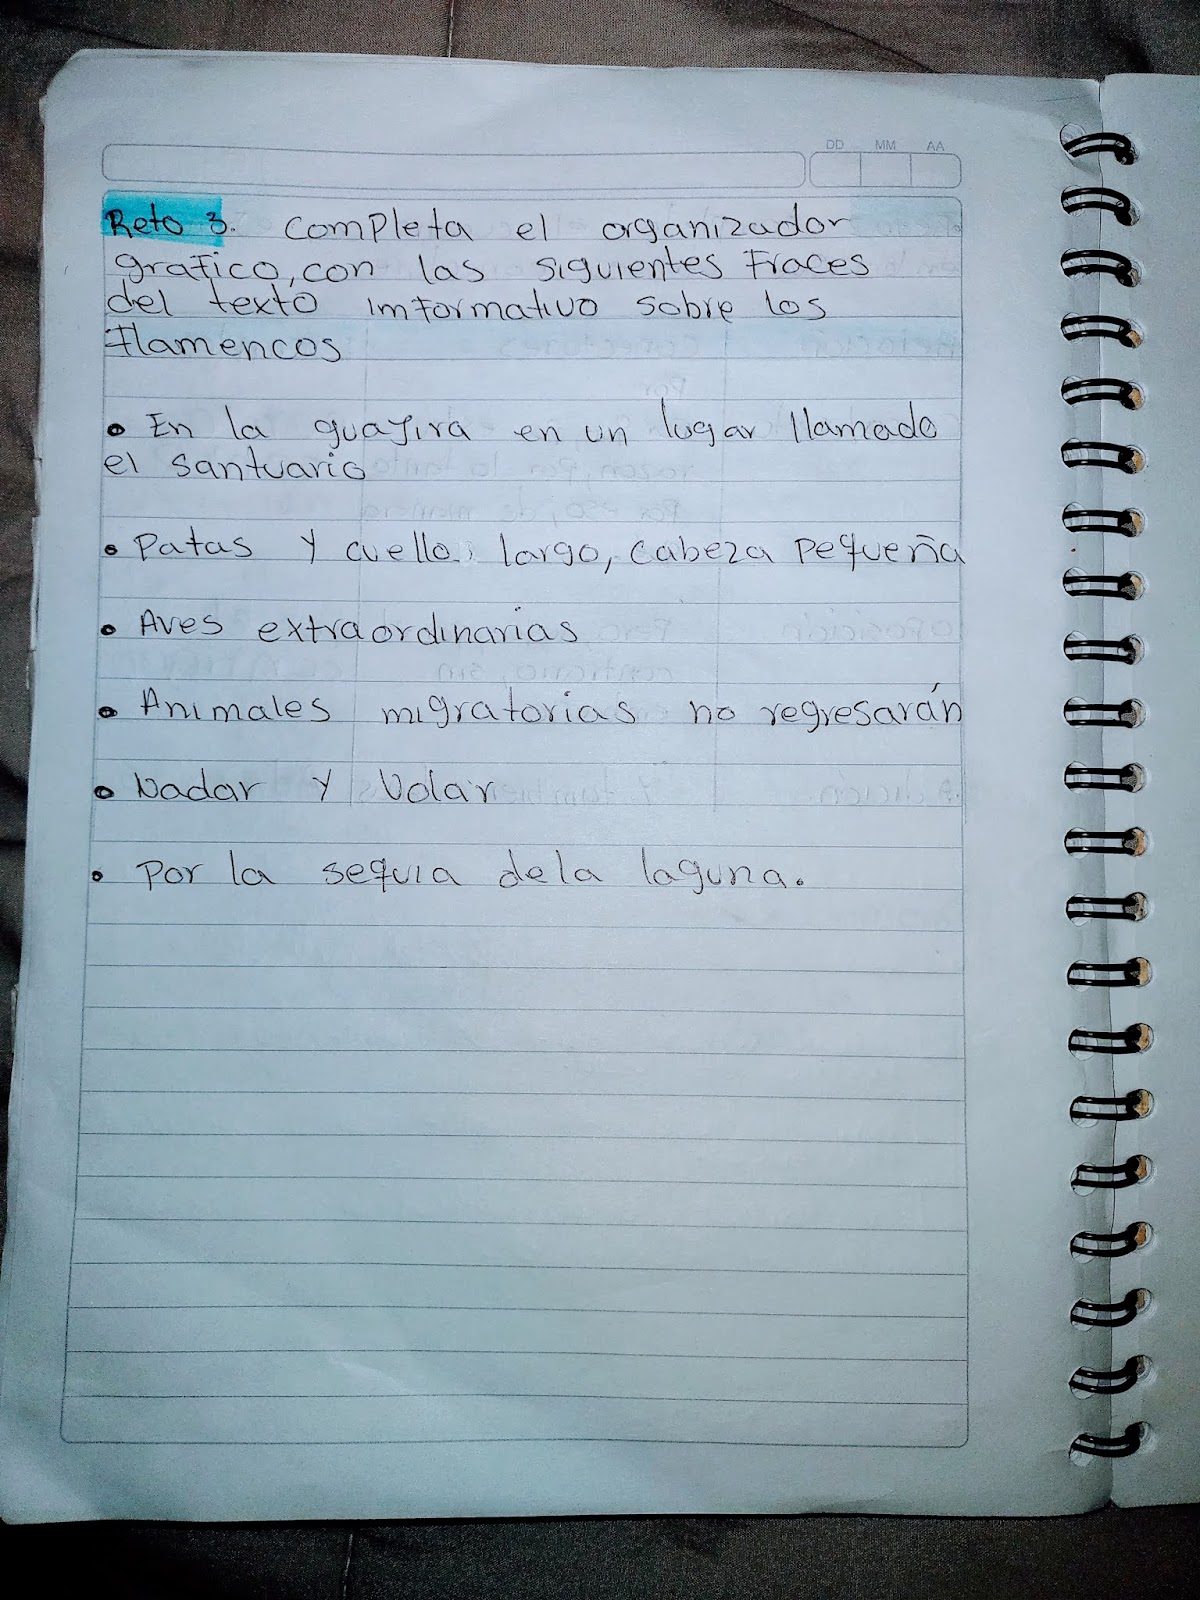 DD MM AA
Reto 3. Completa el organizador
grafico, con las siguientes fraces
del texto imformativo sobre los
flamencos
• En la guajira en un lugar llamado
el santuario
• Patas y cuello largo, cabeza pequeña
• Aves extraordinarias
• Animales migratorias no regresarán
• Nadar y Volar
• Por la sequia dela laguna.